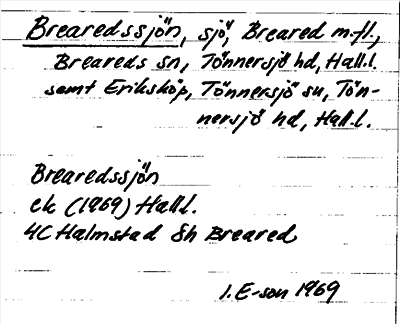 Brearedssjön, sjö, Breared m.fl.,
Breareds sn, Tönnersjö hd, Hall.l.
samt Eriksköp, Tönnersjö sn, Tön-
nersjö hd, Hall.l.
Brearedssjön
ek (1969) Hall.
4C Halmstad 8h Breared
I. E-son 1969